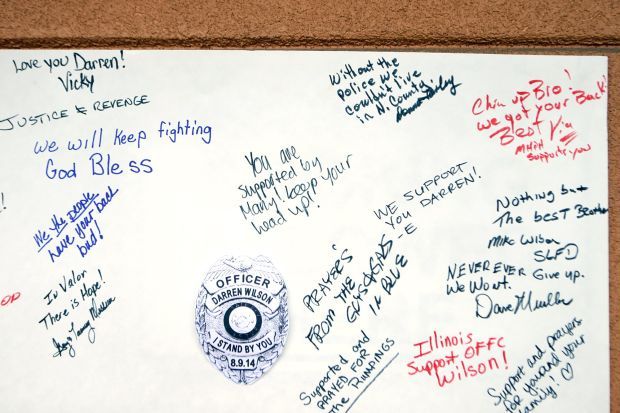 Love you Darren!
Vicky
JUSTICE & REVENGE
we will keep fighting
God Bless
We the people
have your back
bud!
In Valor
There is Hope!
You are
supported by
Many! keep your
head up!
Without the
Police we
couldn't live
in N. County.
Chin up Bro!
we got your Back!
Best
supports you
WE SUPPORT
YOU DARREN!
-E
Nothing but
The besT
Mike Wilson
SLFD
NEVER EVER Give up.
We Won't.
Dave
PRAYERS
FROM THE
GUYS & GALS
IN BLUE
OFFICER
DARREN WILSON
I STAND BY YOU
8.9.14
Supported and
PRAYED FOR
The RUMPINGS
Illinois
Support OFFC
Wilson!
Support and prayers
for you and your
family!